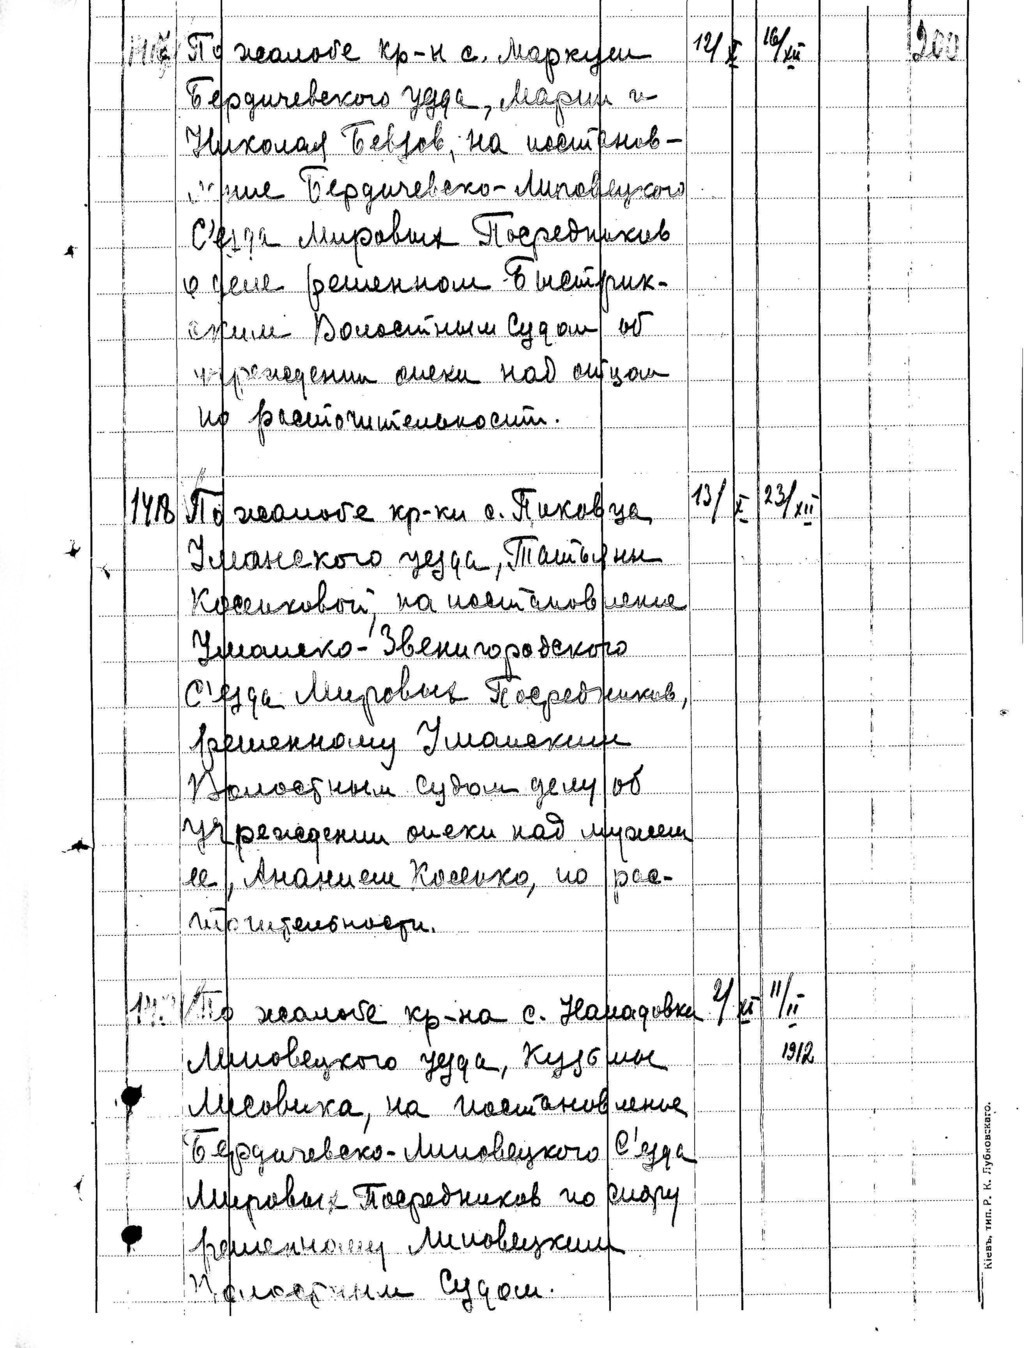 По жалобе кр-н с. Маркуши 12/X 16/XII 200
Бердичевского уезда, Марии и
Николая Бевзов, на постанов-
ление Бердичевско-Липовецкого
С'езда Мировых Посредников
о деле решенном Быстрик-
ским Волостным Судом об
учреждении опеки над отцом
по расточительности.
1418 По жалобе кр-ки с. Пиковца 13/X 23/XII
Уманского уезда, Татьяны
Косенковой, на постановление
Уманско-Звенигородского
С'езда Мировых Посредников,
решенному Уманским
Волостным Судом делу об
учреждении опеки над мужем
ее, Ананием Косенко, по рас-
точительности.
По жалобе кр-на с. 2/XI 11/II
Липовецкого уезда, Кузьмы 1912
Лисовика, на постановление
Бердичевско-Липовецкого С'езда
Мировых Посредников по спору
решенному Липовецким
Волостным Судом.
Кіевъ, тип. Р. К. Лубковскаго.